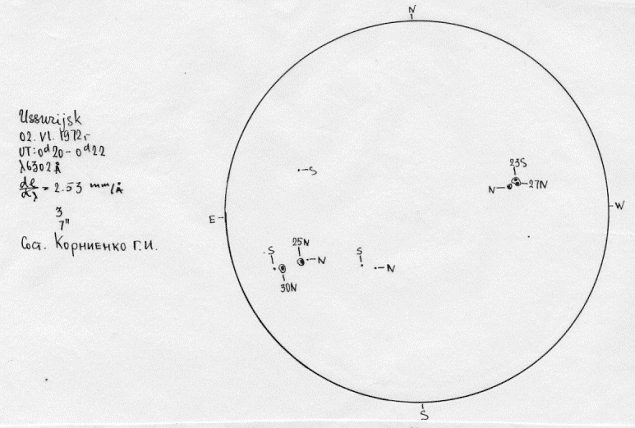 Ussurijsk
02. VI. 1972г
UT: 0ᵈ20 – 0ᵈ22
λ6302Å
dl/dλ = 2.53 mm/Å
3
7"
Сост. Корниенко Г.И.
N
S
23S
N
27N
E
W
S
25N
N
30N
S
N
S